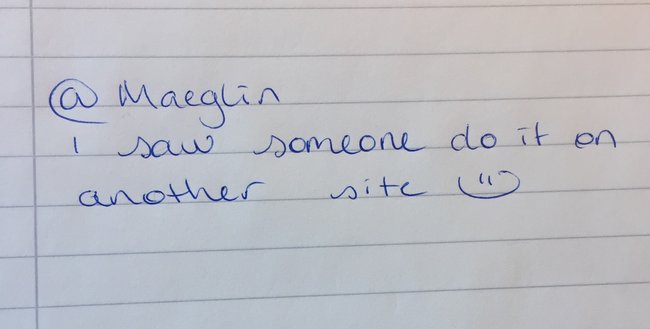 @ Maeglin
I saw someone do it on
another site =)